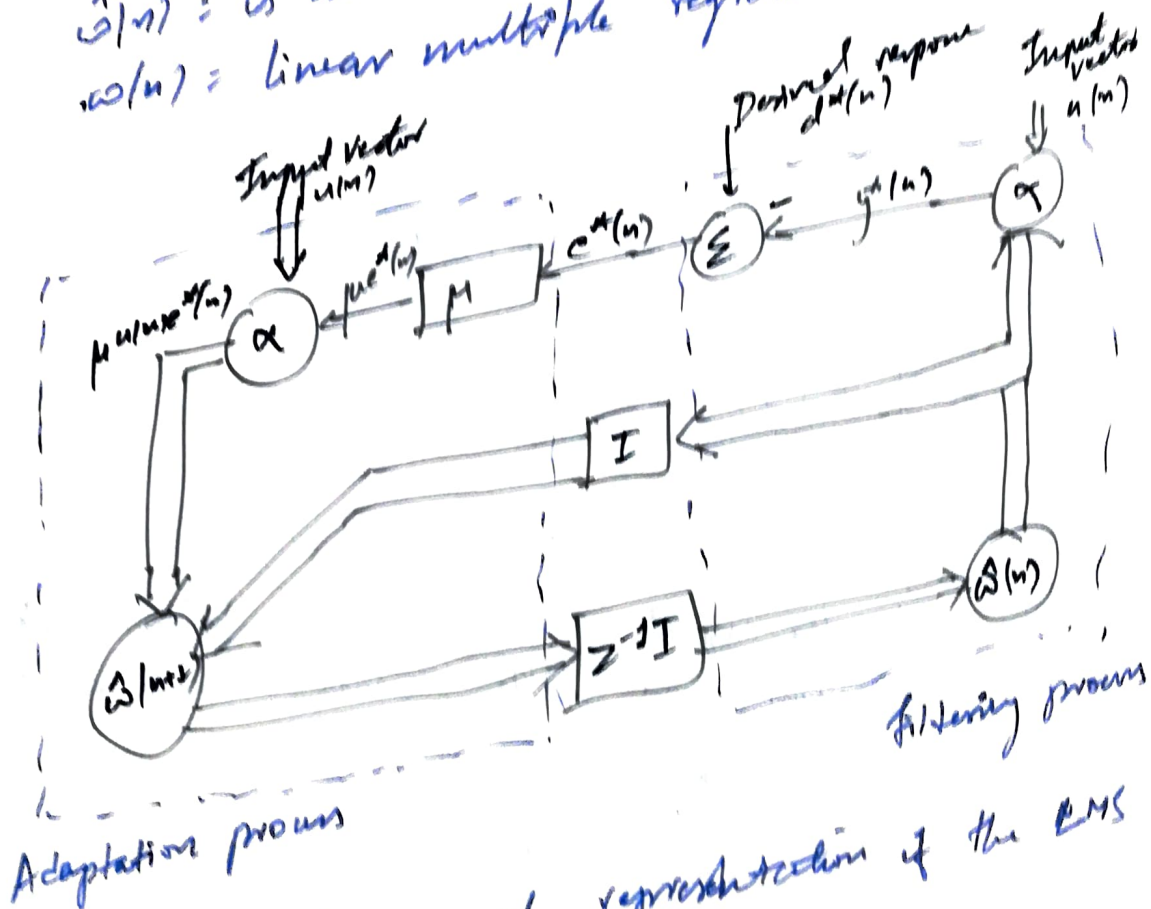 ŵ(n) =
w(n) = linear multiple
Desired response
d*(n)
Input
vector
u(n)
Input vector
u(n)
α
y*(n)
-
Σ
e*(n)
μ
μe*(n)
α
μu(n)e*(n)
I
ŵ(n)
z⁻¹I
ŵ(n+1)
filtering process
Adaptation process
representation of the LMS